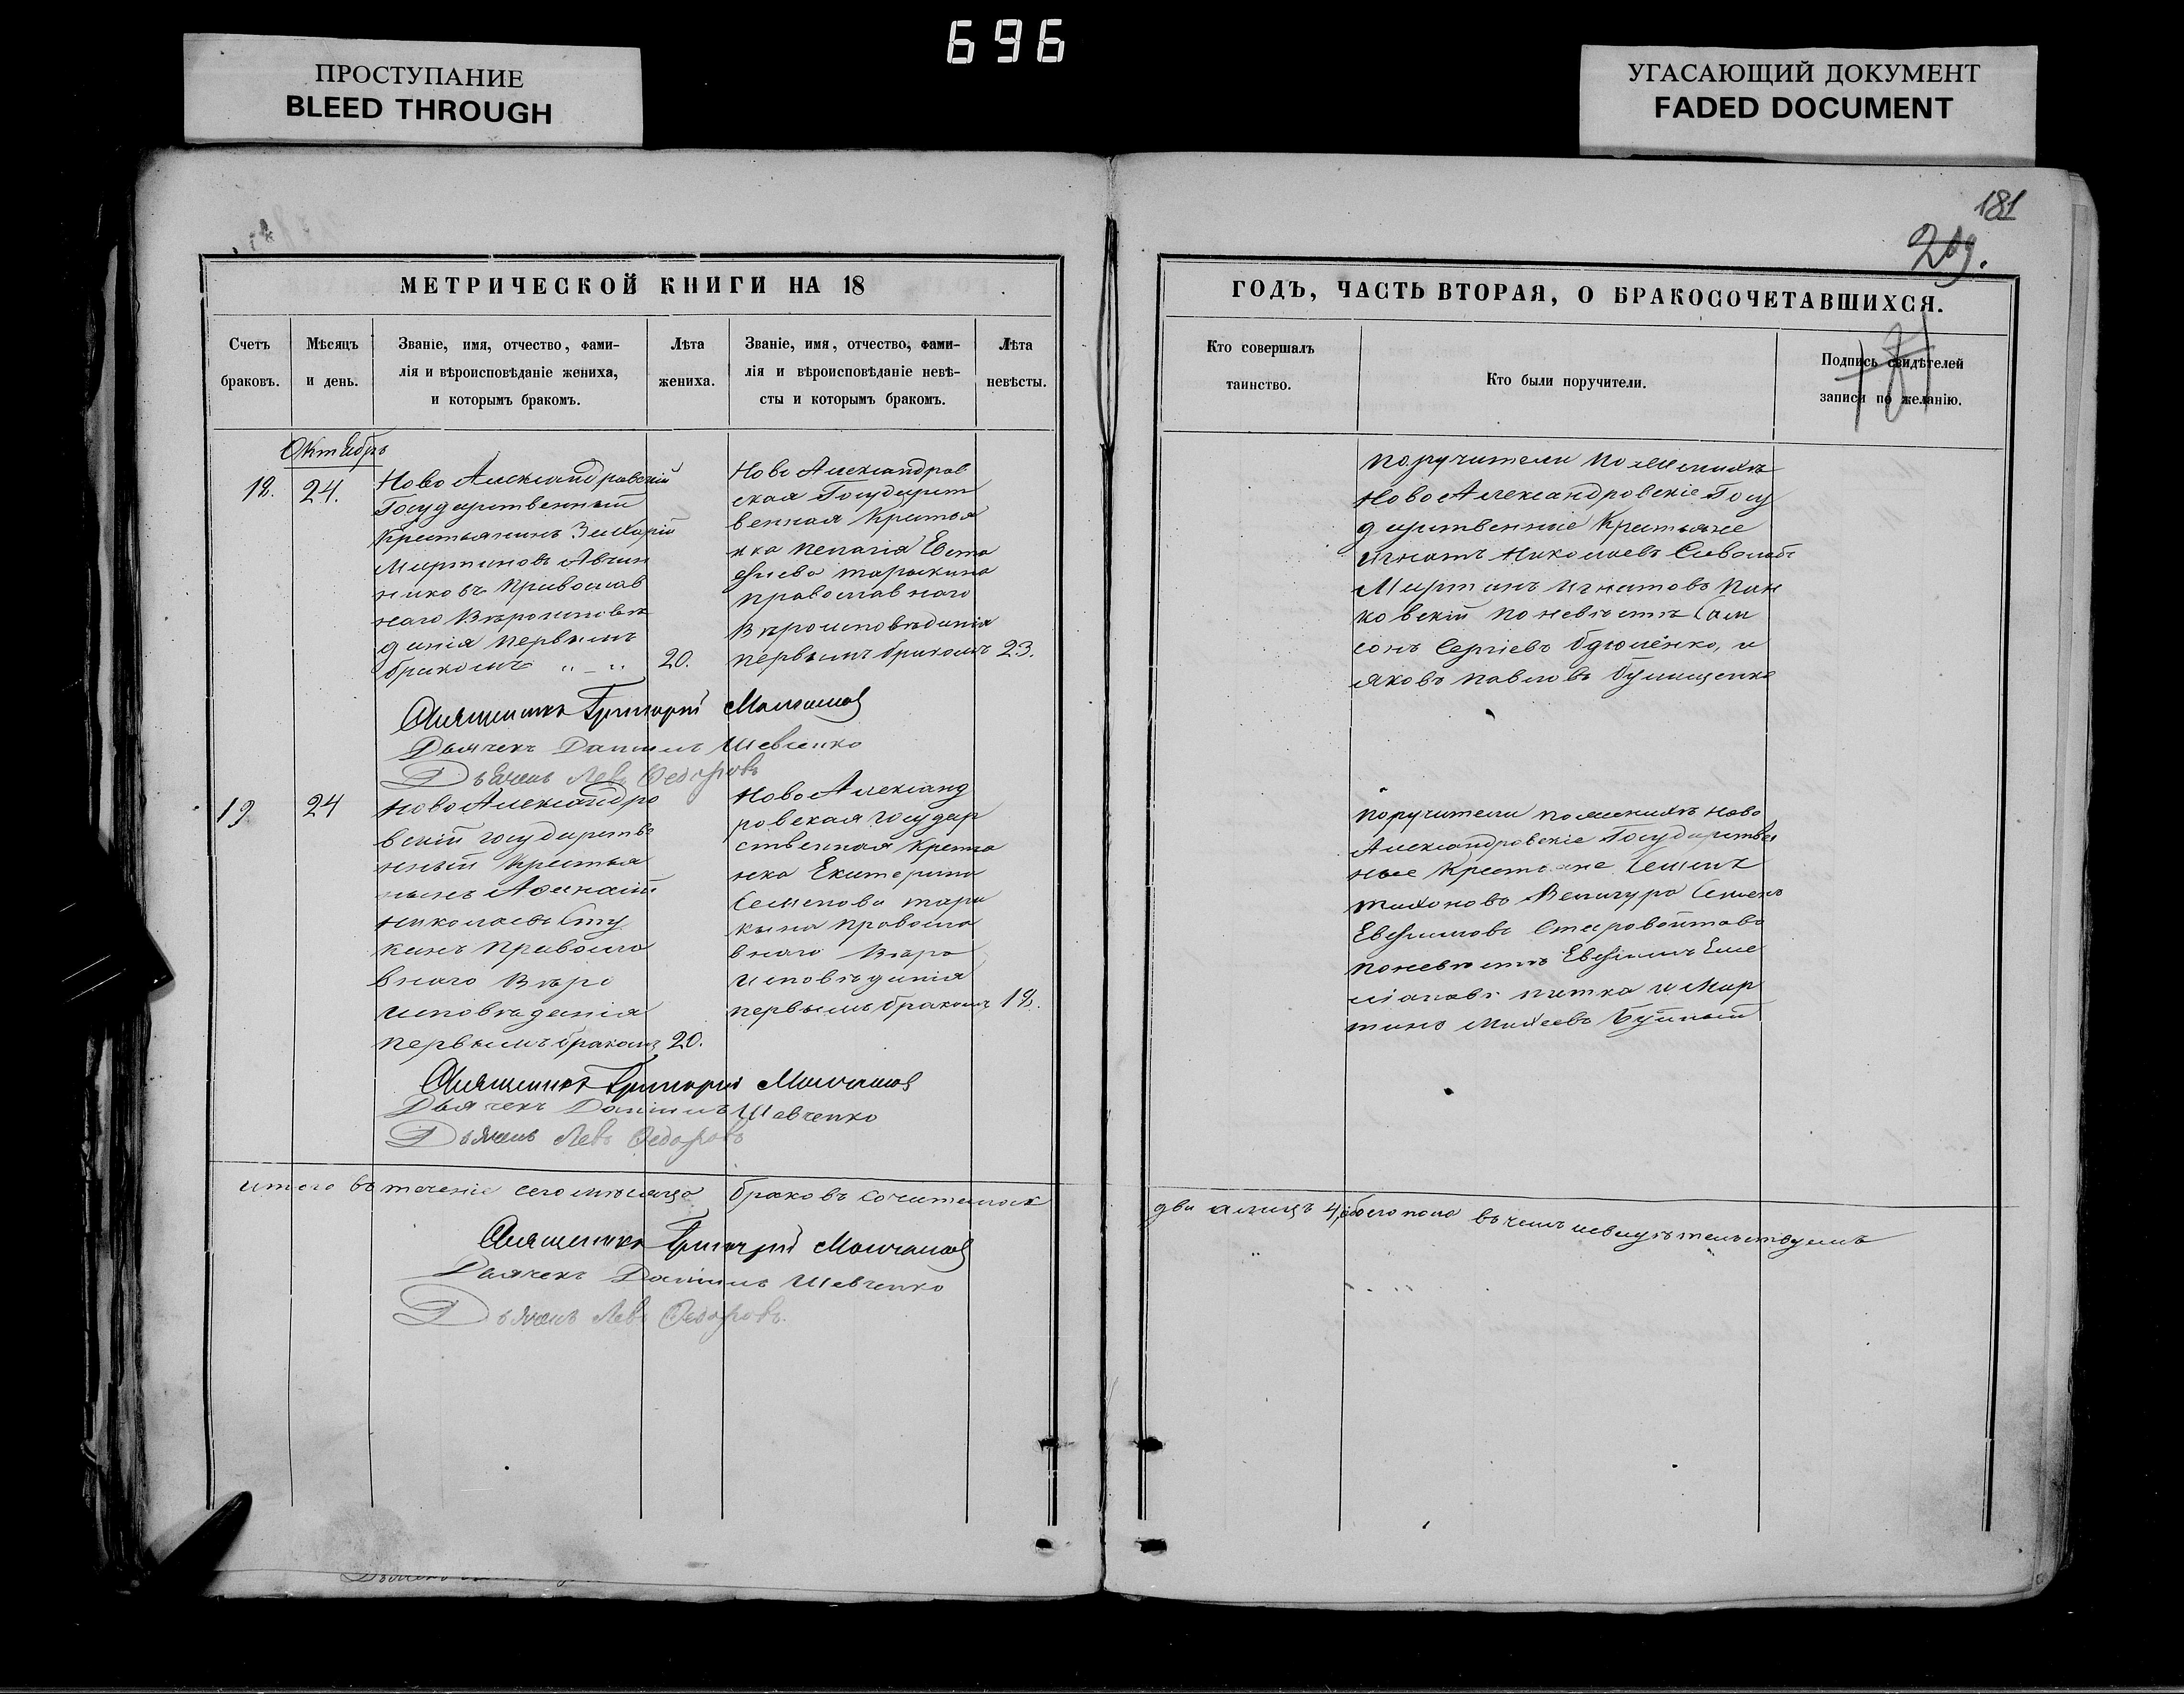 696
ПРОСТУПАНИЕ
BLEED THROUGH
УГАСАЮЩИЙ ДОКУМЕНТ
FADED DOCUMENT
181
209.
МЕТРИЧЕСКОЙ КНИГИ НА 18
Счетъ
браковъ.
Мѣсяцъ
и день.
Званіе, имя, отчество, фами-
лія и вѣроисповѣданіе жениха,
и которымъ бракомъ.
Лѣта
жениха.
Званіе, имя, отчество, фами-
лія и вѣроисповѣданіе невѣ-
сты и которымъ бракомъ.
Лѣта
невѣсты.
Октябрь
18.
24.
Ново Александровскій
Государственный
Крестьянинъ Захарій
Мартиновъ
православ
наго Вѣроисповѣ
данія первымъ
бракомъ
20.
Ново Александров
ская Государст
венная Крестья
нка Пелагія Евста
фіева
православнаго
Вѣроисповѣданія
первымъ бракомъ
23.
Священникъ Григорій
Дьячекъ Даниилъ Шевченко
Дьячекъ Левъ Федоровъ
19
24
Ново Александро
вскій государстве
нный крестья
нинъ
Николаевъ
кинъ правосла
внаго Вѣро
исповѣданія
первымъ бракомъ
20.
Ново Александ
ровская государ
ственная крестья
нка Екатерина
Семенова тара
кина правосла
внаго Вѣро
исповѣданія
первымъ бракомъ
18.
Священникъ Григорій
Дьячекъ Даниилъ Шевченко
Дьячекъ Левъ Федоровъ
итого въ теченіи сего мѣсяца браковъ
Священникъ Григорій
Дьячекъ Даниилъ Шевченко
Дьячекъ Левъ Федоровъ.
ГОДЪ, ЧАСТЬ ВТОРАЯ, О БРАКОСОЧЕТАВШИХСЯ.
Кто совершалъ
таинство.
Кто были поручители.
Подпись свидѣтелей
записи по желанію.
181
поручители по женихѣ
Ново Александровскіе Госу
дарственные Крестьяне
Игнатъ Николаевъ
Мартинъ Игнатовъ Пан
ковскій по невѣстѣ Сам
сонъ Сергіевъ и
Яковъ Павловъ
поручители по женихѣ Ново
Александровскіе Государствен
ные Крестьяне Семенъ
Тихоновъ Величура Семенъ
Евфимовъ Старовойтовъ
по невѣстѣ Евфимъ Еме
ліановъ и Мар
тинъ Михеевъ
два а лицъ 4, обоего пола въ чемъ и свидѣтельствуемъ